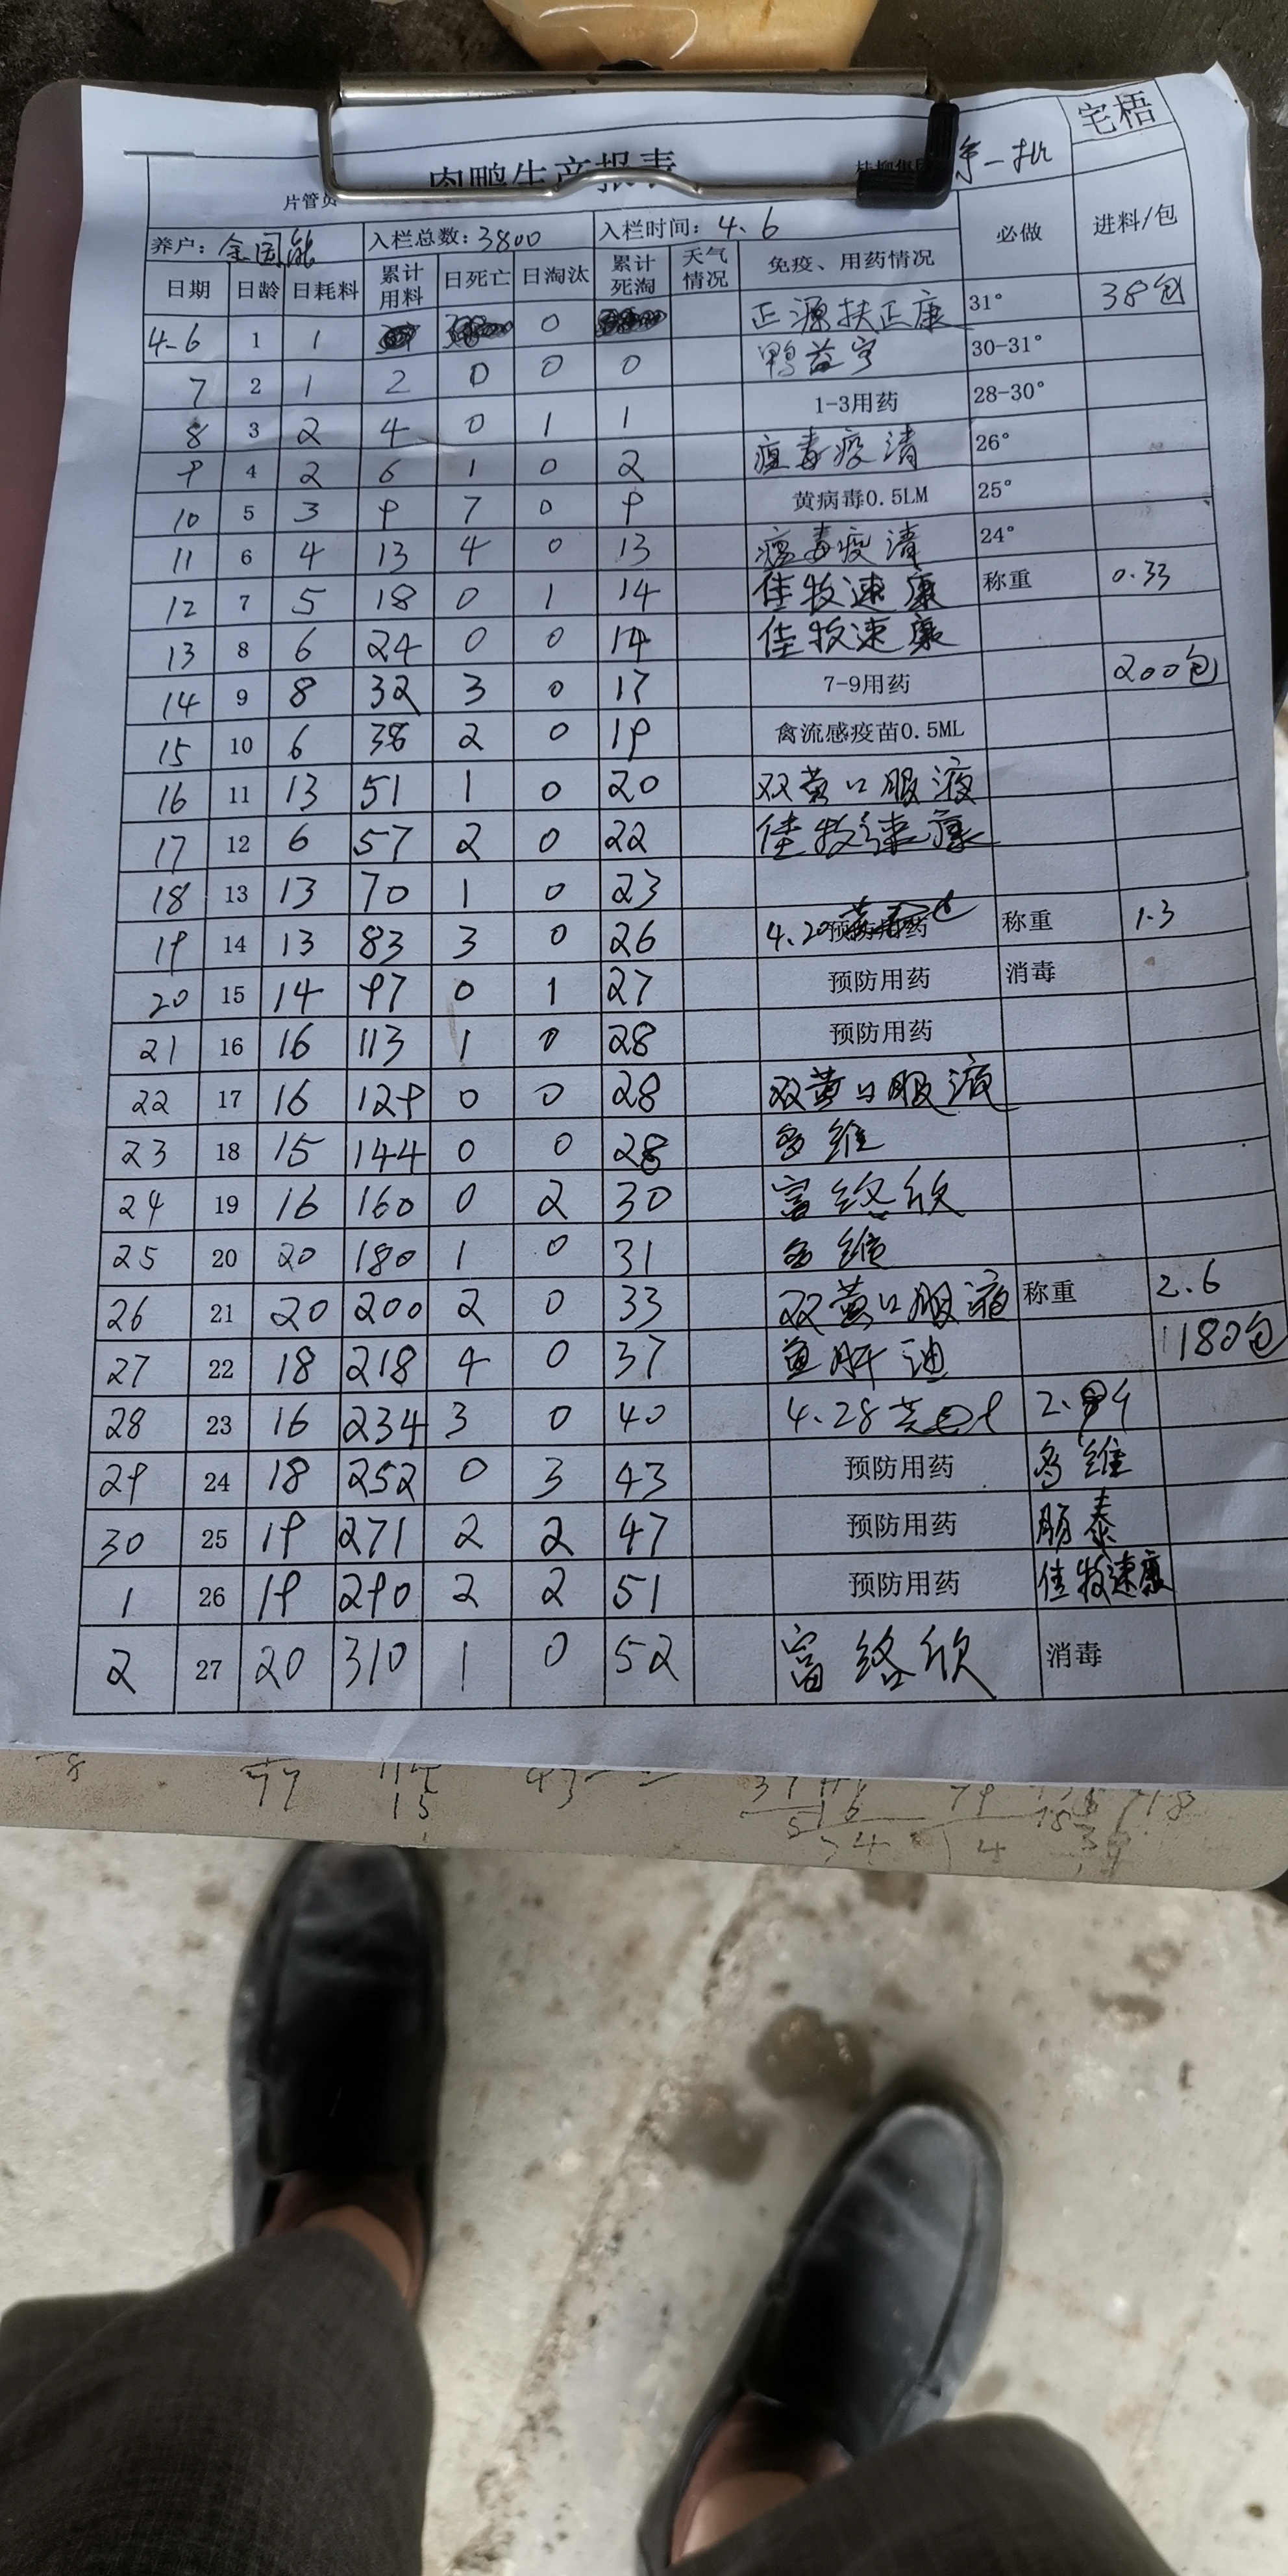 宅梧
肉鸭生产报表 第一批
片管员
养户: 全国能 入栏总数: 3800 入栏时间: 4.6 必做 进料/包
日期 日龄 日耗料 累计用料 日死亡 日淘汰 累计死淘 天气情况 免疫、用药情况
4-6 1 1 0 正源扶正康 31° 38包
7 2 1 2 0 0 0 鸭益宁 30-31°
8 3 2 4 0 1 1 1-3用药 28-30°
9 4 2 6 1 0 2 瘟毒疫清 26°
10 5 3 9 7 0 9 黄病毒0.5LM 25°
11 6 4 13 4 0 13 瘟毒疫清 24°
12 7 5 18 0 1 14 佳牧速康 称重 0.33
13 8 6 24 0 0 14 佳牧速康
14 9 8 32 3 0 17 7-9用药 200包
15 10 6 38 2 0 19 禽流感疫苗0.5ML
16 11 13 51 1 0 20 双黄口服液
17 12 6 57 2 0 22 佳牧速康
18 13 13 70 1 0 23
19 14 13 83 3 0 26 4.20 预防用药 称重 1.3
20 15 14 97 0 1 27 预防用药 消毒
21 16 16 113 1 0 28 预防用药
22 17 16 129 0 0 28 双黄口服液
23 18 15 144 0 0 28 多维
24 19 16 160 0 2 30 富络欣
25 20 20 180 1 0 31 多维
26 21 20 200 2 0 33 双黄口服液 称重 2.6
27 22 18 218 4 0 37 鱼肝油 180包
28 23 16 234 3 0 40 4.28
29 24 18 252 0 3 43 预防用药 多维
30 25 19 271 2 2 47 预防用药 肠泰
1 26 19 290 2 2 51 预防用药 佳牧速康
2 27 20 310 1 0 52 富络欣 消毒